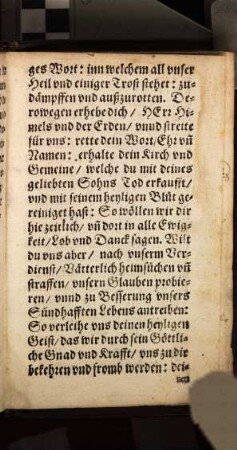 ges Wort: inn welchem all vnser
Heil vnd einiger Trost stehet: zu-
dämpffen vnd außzurotten. De-
rowegen erhebe dich / HErr Hi-
mels vnd der Erden / vnnd streite
für vns: rette dein Wort / Ehr vñ
Namen: erhalte dein Kirch vnd
Gemeine / welche du mit deines
geliebten Sohns Tod erkaufft /
vnd mit seinem heyligen Blůt ge-
reiniget hast: So wöllen wir dir
hie zeitlich / vñ dort in alle Ewig-
keit / Lob vnd Danck sagen. Wilt
du vns aber / nach vnserm Ver-
dienst / Vätterlich heimsuchen vñ
straffen / vnsern Glauben probie-
ren / vnnd zu Besserung vnsers
Sündhafften Lebens antreiben:
So verleihe vns deinen heyligen
Geist / das wir durch sein Göttli-
che Gnad vnd Krafft / vns zu dir
bekehren vnd fromb werden: dei-
nen